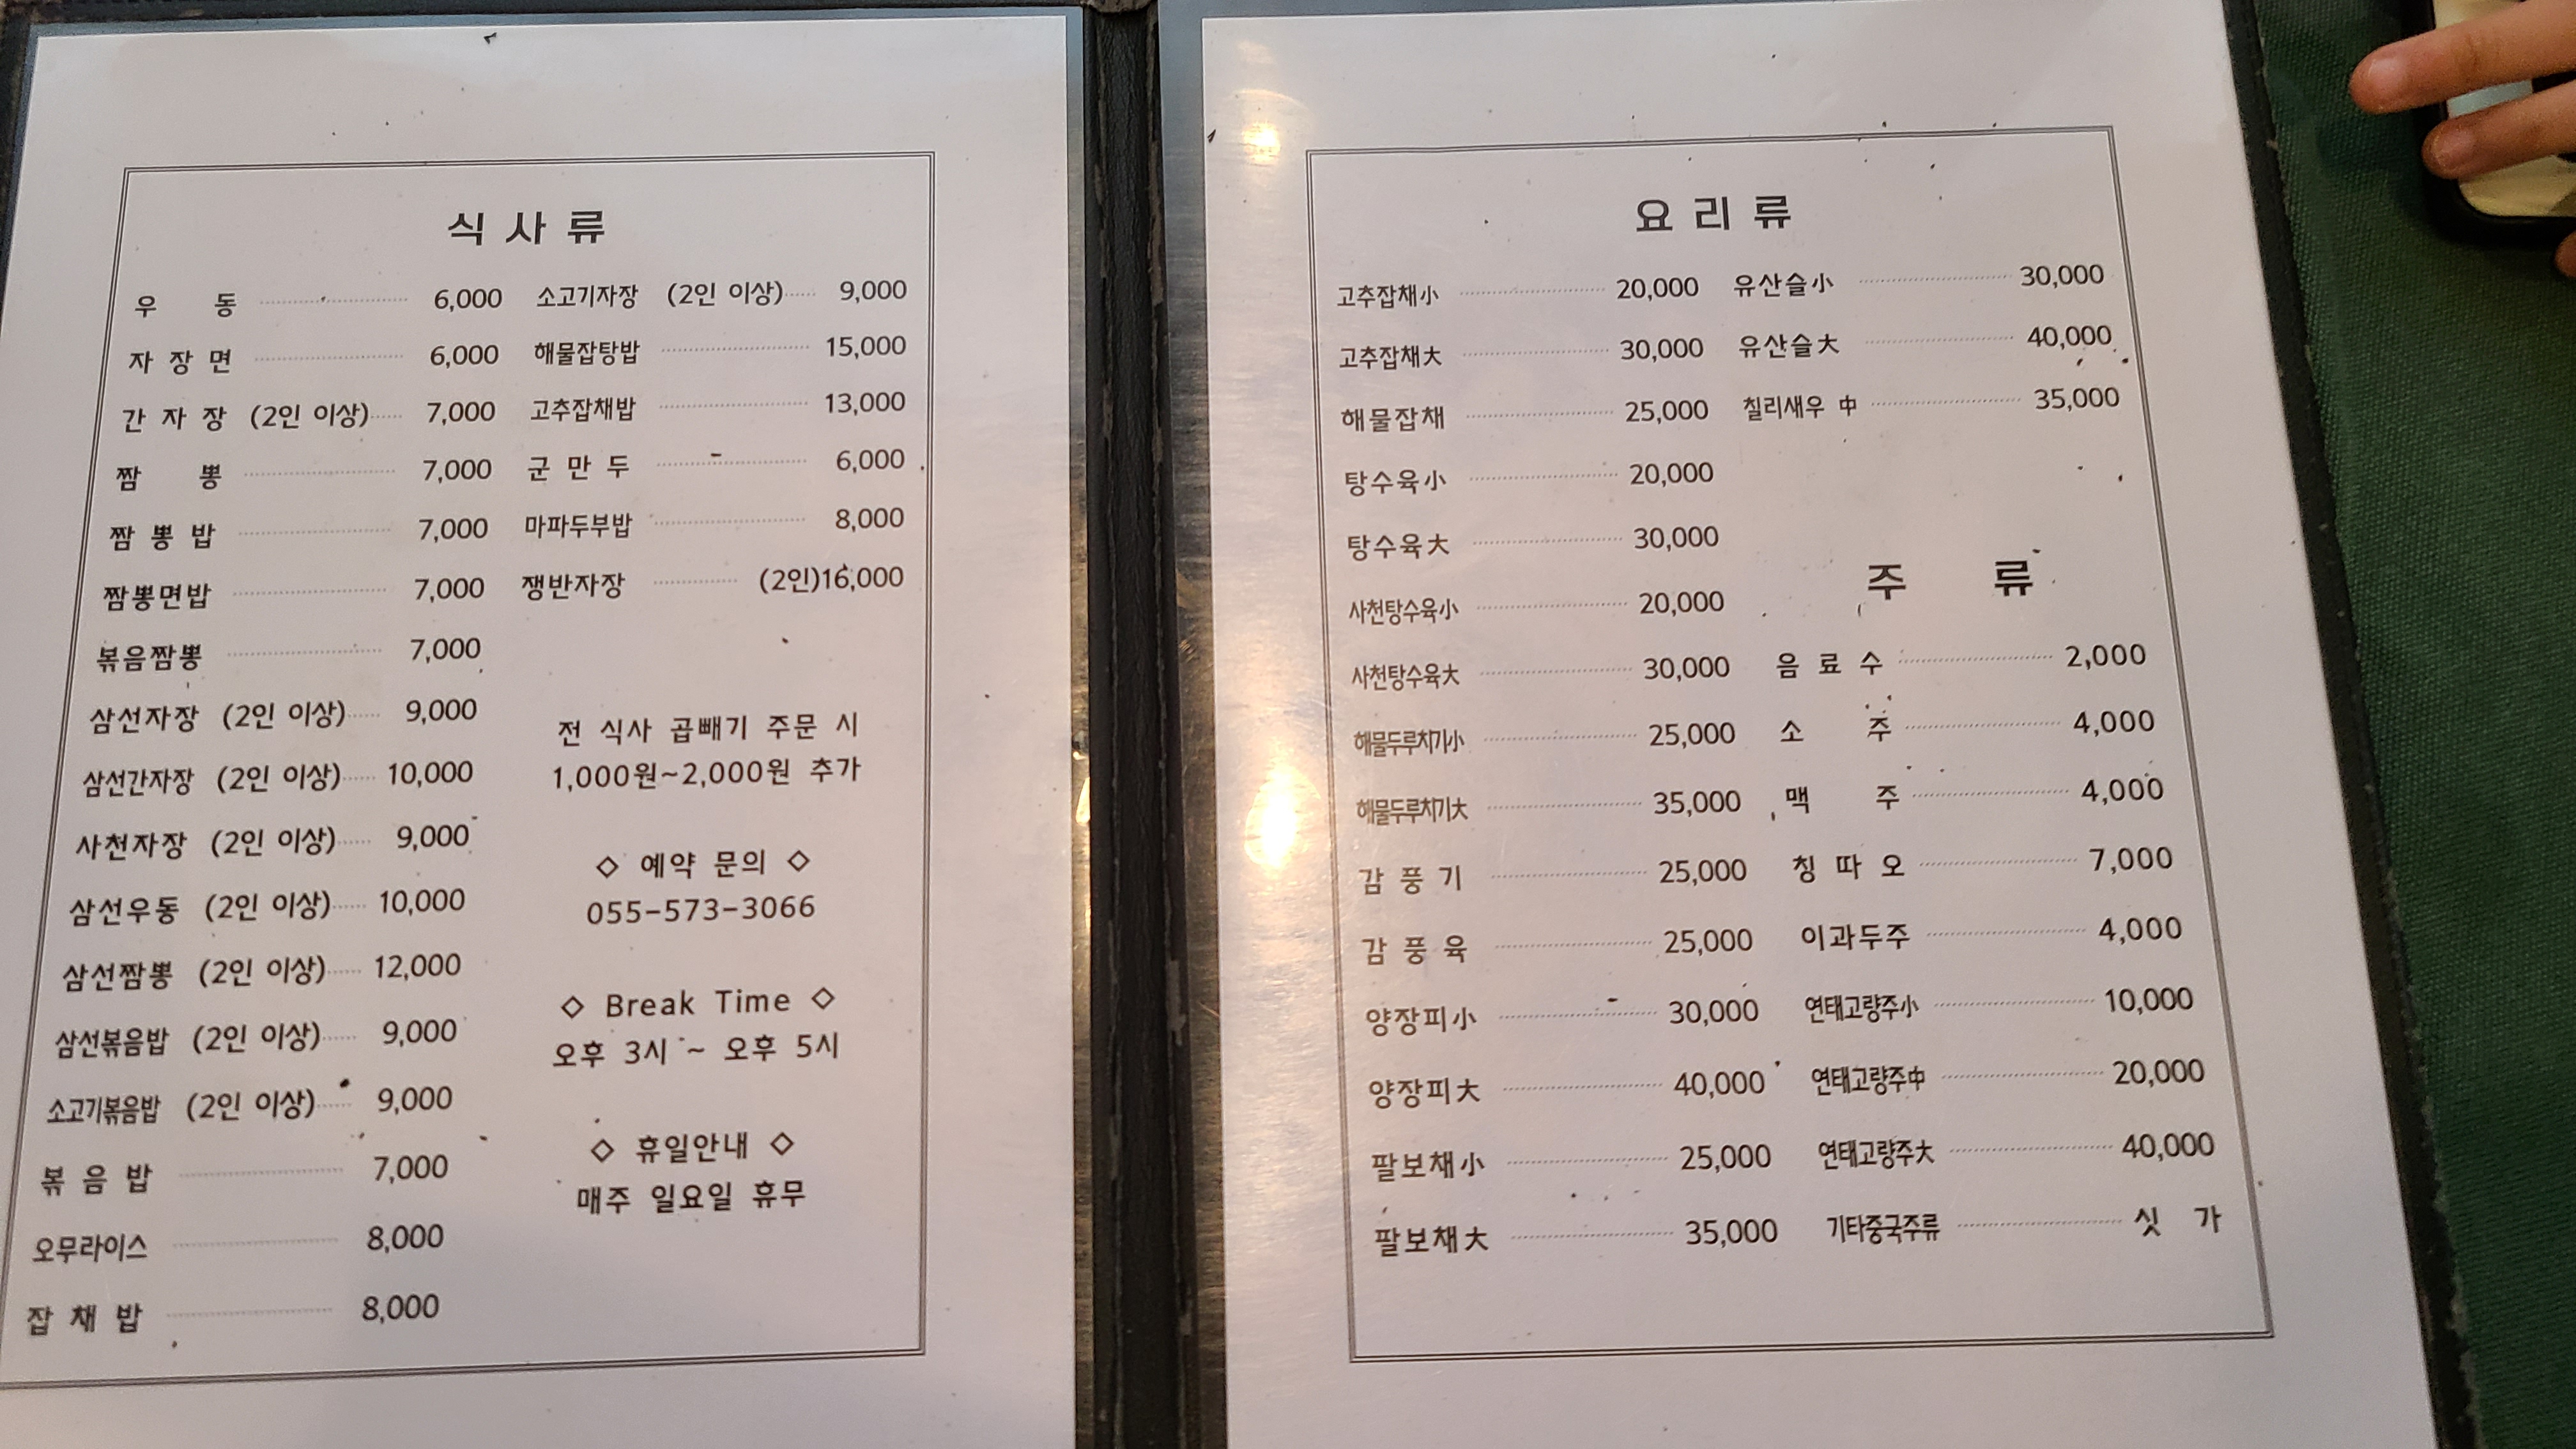 식사류
우 동 6,000
자장면 6,000
간자장 (2인 이상) 7,000
짬 뽕 7,000
짬뽕밥 7,000
짬뽕면밥 7,000
볶음짬뽕 7,000
삼선자장 (2인 이상) 9,000
삼선간자장 (2인 이상) 10,000
사천자장 (2인 이상) 9,000
삼선우동 (2인 이상) 10,000
삼선짬뽕 (2인 이상) 12,000
삼선볶음밥 (2인 이상) 9,000
소고기볶음밥 (2인 이상) 9,000
볶음밥 7,000
오무라이스 8,000
잡채밥 8,000
소고기자장 (2인 이상) 9,000
해물잡탕밥 15,000
고추잡채밥 13,000
군만두 6,000
마파두부밥 8,000
쟁반자장 (2인)16,000
전 식사 곱빼기 주문 시
1,000원~2,000원 추가
◇ 예약 문의 ◇
055-573-3066
◇ Break Time ◇
오후 3시 ~ 오후 5시
◇ 휴일안내 ◇
매주 일요일 휴무
요리류
고추잡채小 20,000
고추잡채大 30,000
해물잡채 25,000
탕수육小 20,000
탕수육大 30,000
사천탕수육小 20,000
사천탕수육大 30,000
해물두루치기小 25,000
해물두루치기大 35,000
감풍기 25,000
감풍육 25,000
양장피小 30,000
양장피大 40,000
팔보채小 25,000
팔보채大 35,000
유산슬小 30,000
유산슬大 40,000
칠리새우 中 35,000
주 류
음료수 2,000
소 주 4,000
맥 주 4,000
칭따오 7,000
이과두주 4,000
연태고량주小 10,000
연태고량주中 20,000
연태고량주大 40,000
기타중국주류 싯 가